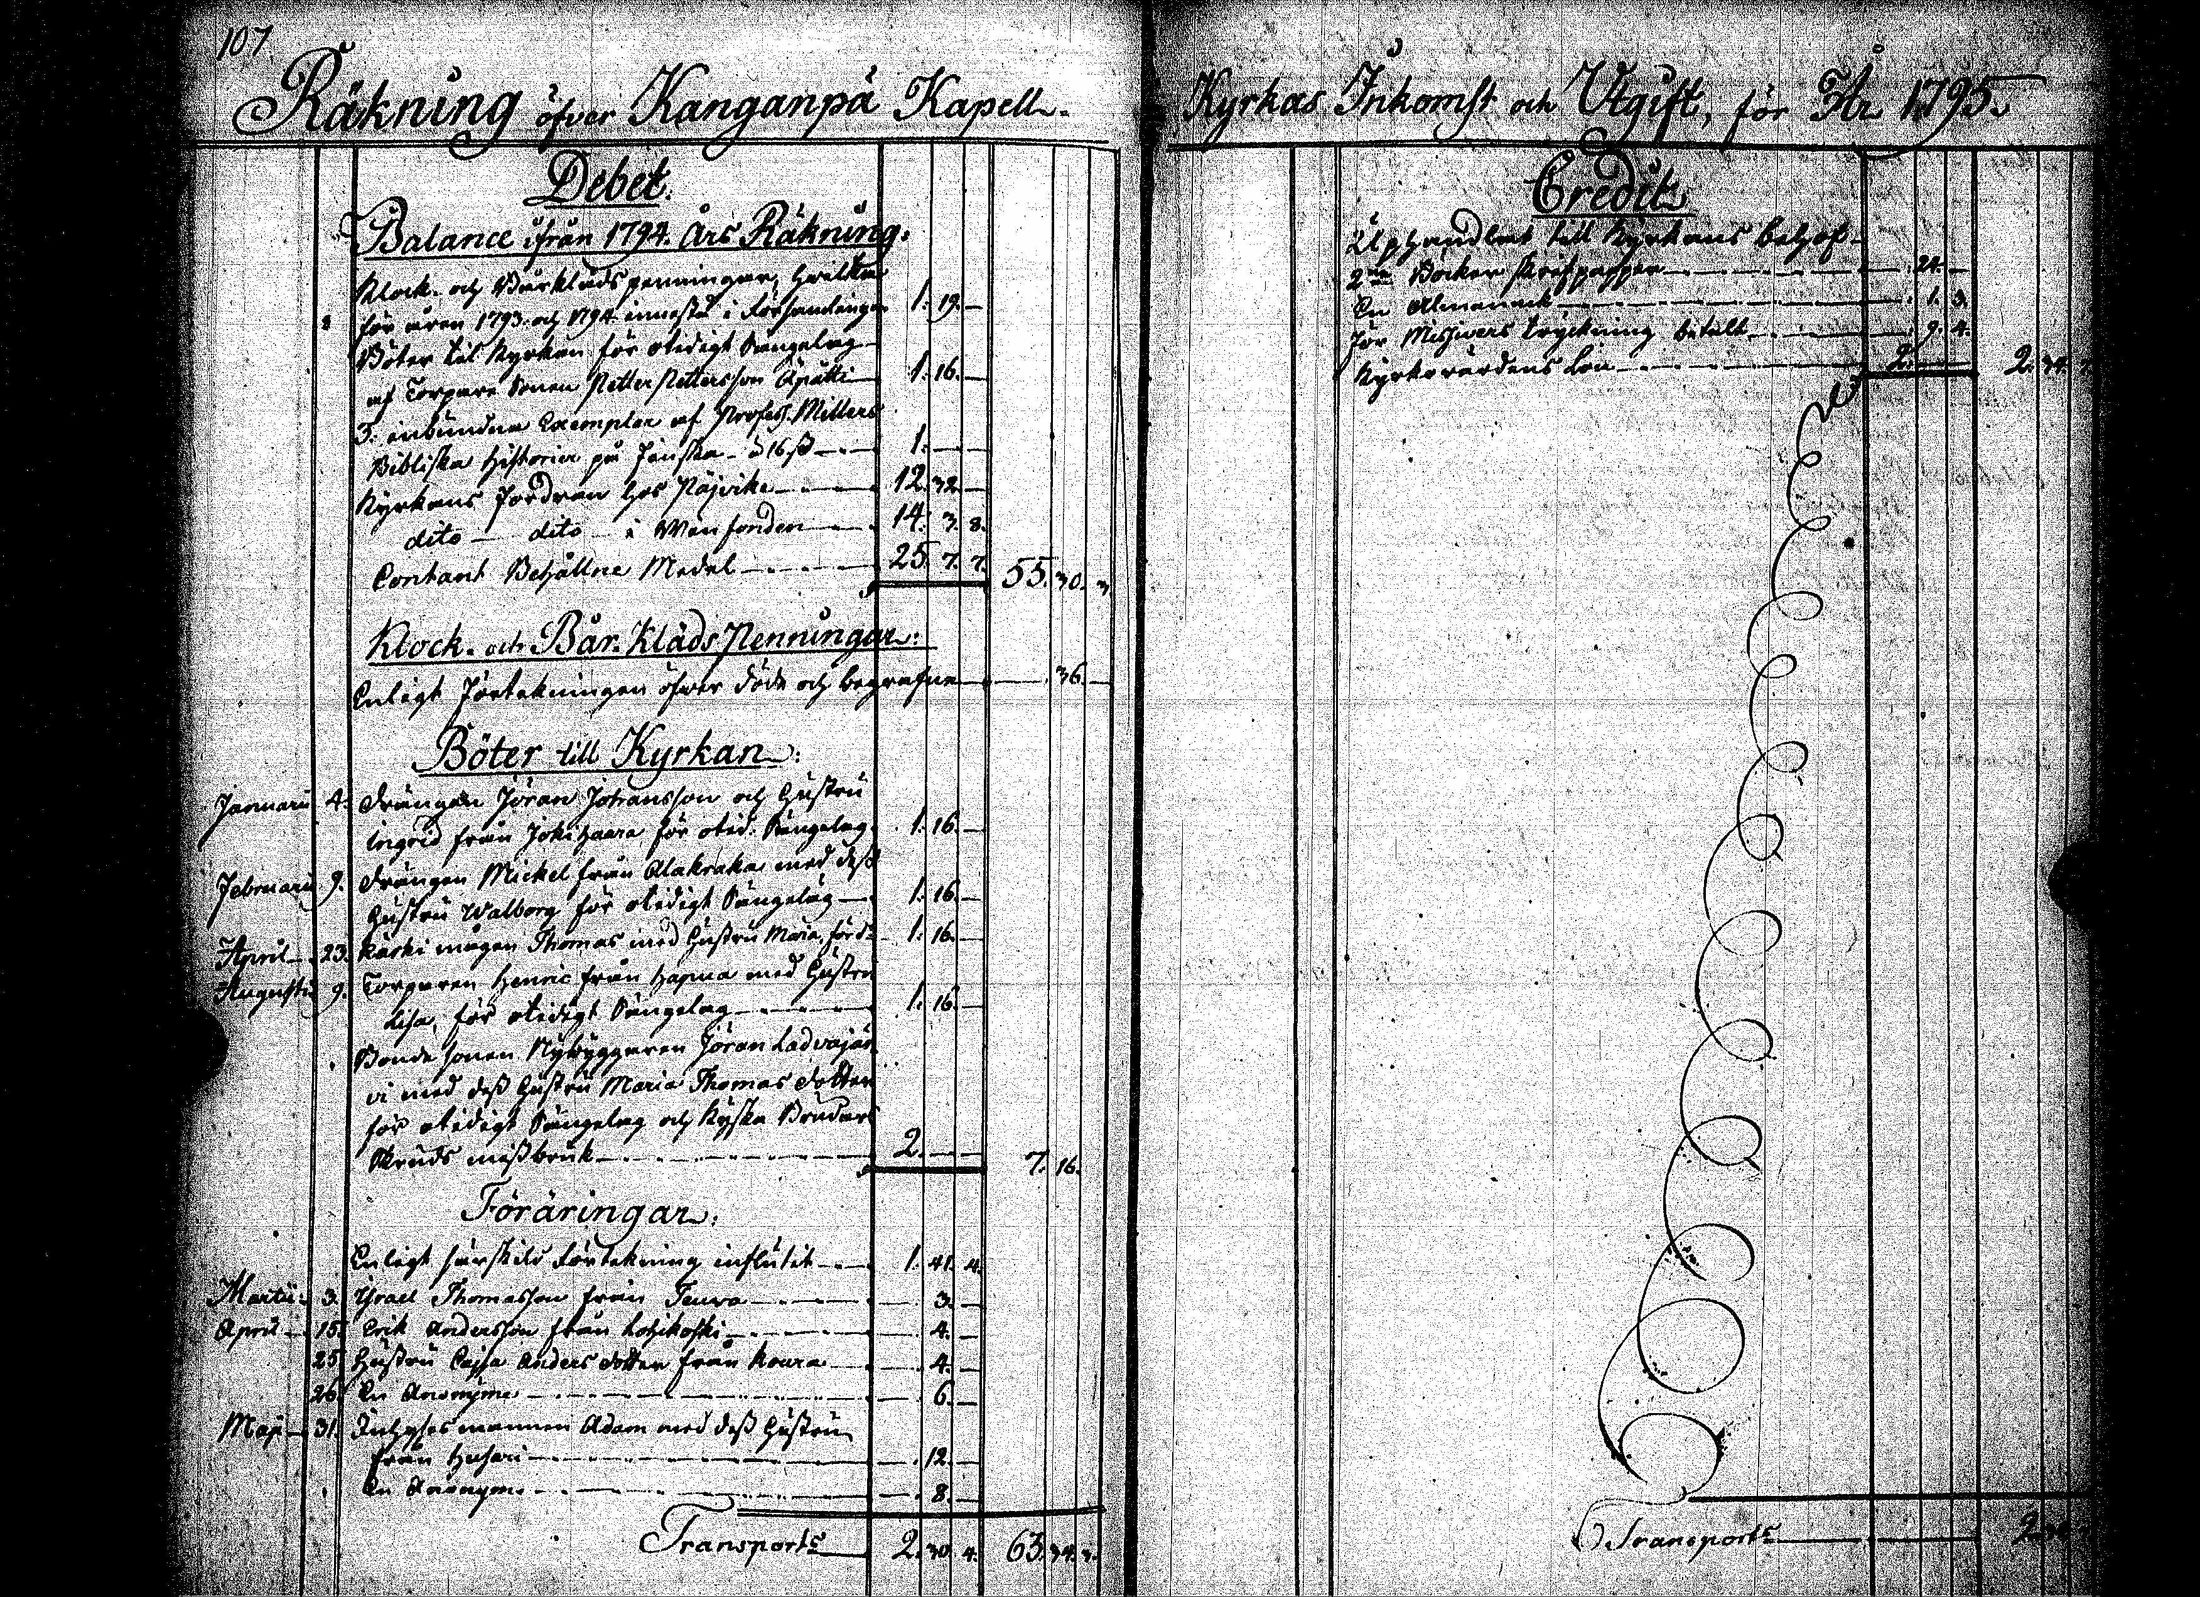 107.
Räkning öfver Kanganpä Kapell-
Debet.
Balance ifrån 1794. Års Räkning:
Klock- och Bårklädspenningar, hvilka
för åren 1793. och 1794. innestå i Församlingen 1. 19. —
Böter til Kyrkan för otidigt Sängelag
af Torpare Sonen Petter Pettersson Äpätti — 1. 16. —
3. inbundna Exemplar af Profess. Millers
Bibliska Historier på Finska — à 16 ß — 1. — —
Kyrkans Fordran hos Näjvike — 12. 32. —
dito — dito — i Men fonden — 14. 3. 8.
Contant Behållne Medel — 25. 7. 7. 55. 30. 3.
Klock- och Bår-Kläds Penningar:
Enligt Förtekningen öfver döde och begrafne — 36. —
Böter till Kyrkan:
Januarii 4. Drängen Jöran Johansson och Hustru
Ingrid från Jokihaara för otid. Sängelag. 1. 16. —
Februarii 9. Drängen Mickel från Alakraka med dess
Hustru Walborg för otidigt Sängelag — 1. 16. —
April — 23. Kaski mågen Thomas med Hustru Maria, förd. 1. 16. —
Augusti 9. Torparen Henric från Hapua med Hustru
Lisa, för otidigt Sängelag — 1. 16. —
Bonde sonen Nybyggaren Jöran Ladvajär-
vi med dess Hustru Maria Thomas dotter
för otidigt Sängelag och Kyska Brudars
Skruds missbruk — 2. — — 7. 16.
Föräringar:
Enligt särskild Förtekning influtit — 1. 41. 4.
Martii. 3. Israel Thomasson från Teuva — 3. —
April — 15. Erik Andersson från Lohikoski — 4. —
25. Hustru Cajsa Anders dotter från Koura — 4. —
26. En Anonyme — 6. —
Maji — 31. Inhyses mannen Adam med dess Hustru
från Huhari — 12. —
En Anonyme — 8. —
Transport — 2. 30. 4. 63. 34. 3.
Kyrkas Inkomst och Utgift, för År 1795.
Credit
Uphandlat till Kyrkans behof-
2ne Böcker skrifpapper — 24. —
En Almanack — 1. 3.
För Missivers tryckning betalt — 9. 4.
Kyrkovärdens Lön — 2. — — 2. 34. 7.
Transport — 2.